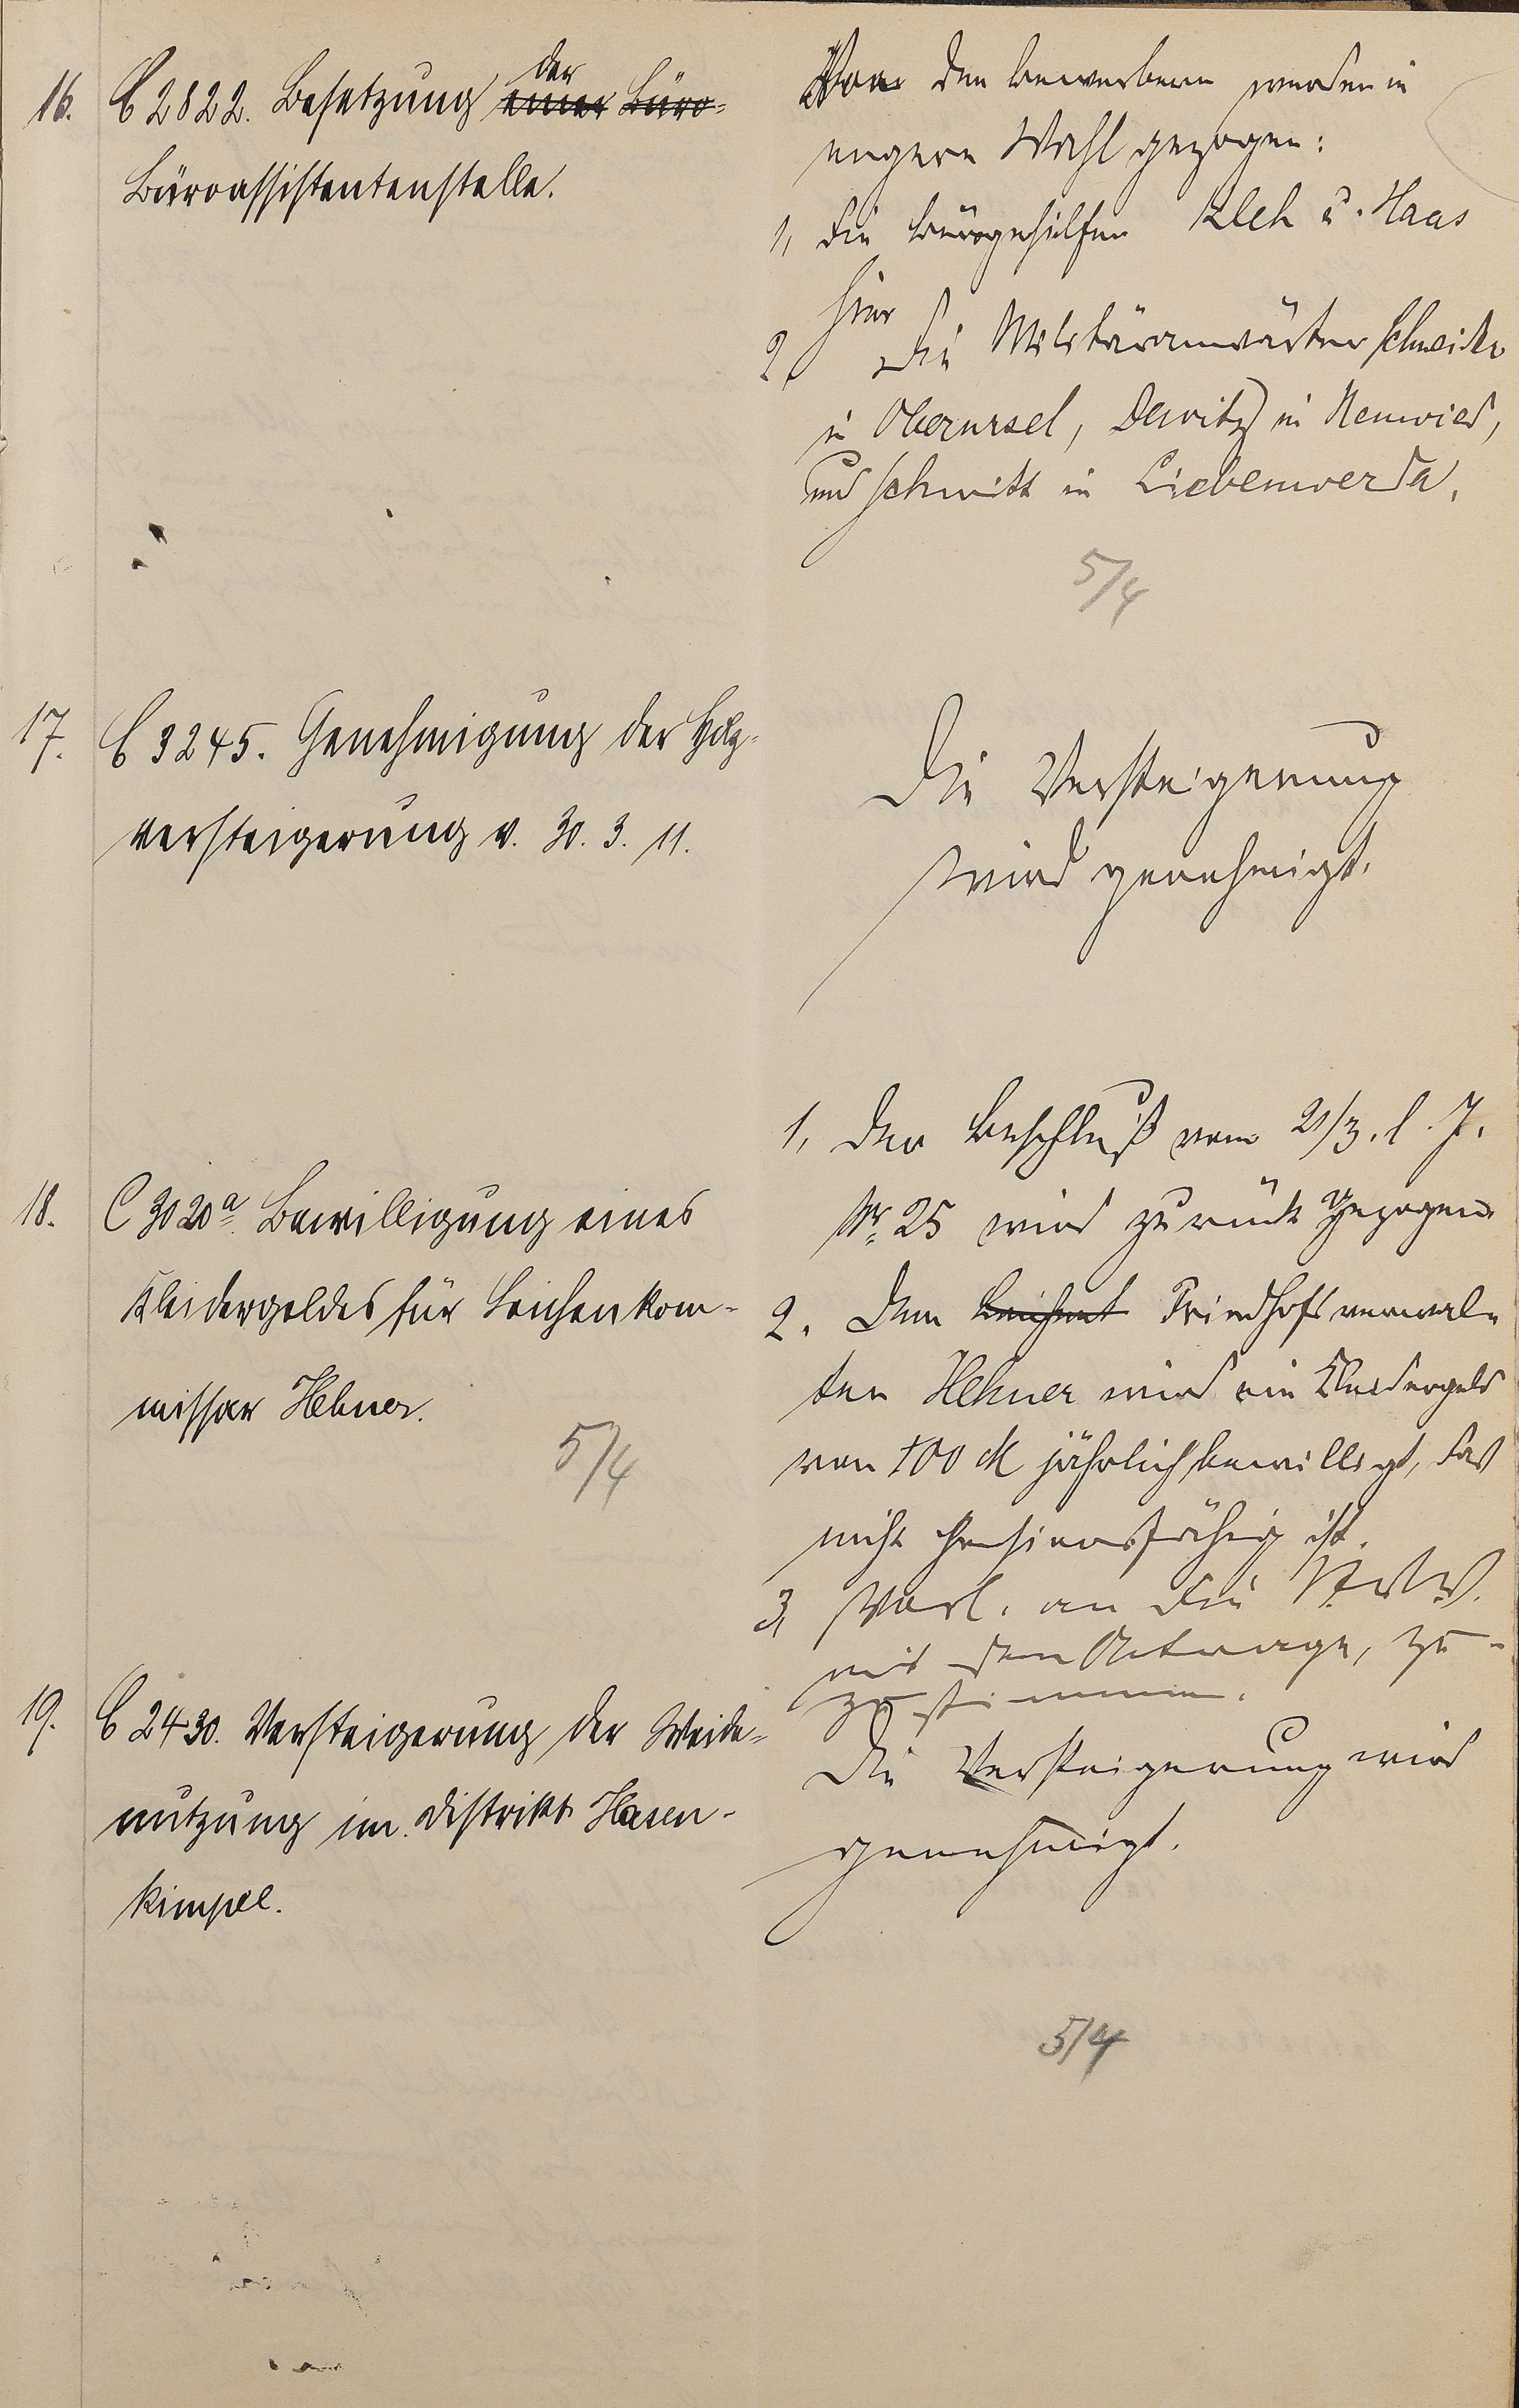 16.
C 2822. Besetzung einer Büro-
der
Büroassistentenstelle.
Von den Bewerbern werden in
engere Wahl gezogen:
1, die Bürogehilfen u. Haas
hier
2, die Militäranwärter Schneider
in Oberursel, Dewitz in Neuwied,
und Schmitt in Liebenwerda.
5/4
17.
C 3245. Genehmigung der Holz-
versteigerung v. 30. 3. 11.
Die Versteigerung
wird genehmigt.
18.
C 3020a. Bewilligung eines
Kleidergeldes für Leichenkom-
missar Hehner.
5/4
1, Der Beschluß vom 21/3. l. J.
Nr. 25 wird zurück gezogen
2. Dem Friedhofsverwal-
ter Hehner wird ein Kleidergeld
von 100 M jährlich bewilligt, das
nicht pensionsfähig ist.
3, Vorl. an die
mit dem Antrage, zu-
zustimmen.
19.
C 2430. Versteigerung der Weide-
nutzung im Distrikt Hasen-
kimpel.
Die Versteigerung wird
genehmigt.
5/4